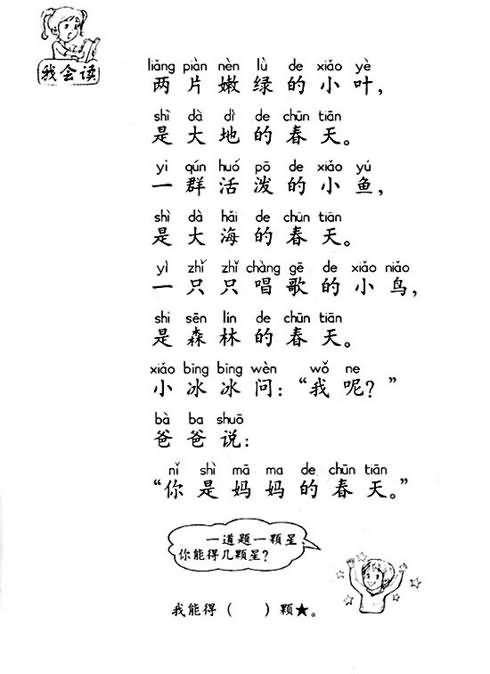 我会读
liǎng piàn nèn lǜ de xiǎo yè
两片嫩绿的小叶，
shì dà dì de chūn tiān
是大地的春天。
yì qún huó pō de xiǎo yú
一群活泼的小鱼，
shì dà hǎi de chūn tiān
是大海的春天。
yì zhǐ zhǐ chàng gē de xiǎo niǎo
一只只唱歌的小鸟，
shì sēn lín de chūn tiān
是森林的春天。
xiǎo bīng bīng wèn wǒ ne
小冰冰问：“我呢？”
bà ba shuō
爸爸说：
nǐ shì mā ma de chūn tiān
“你是妈妈的春天。”
一道题一颗星
你能得几颗星？
我能得（ ）颗★。